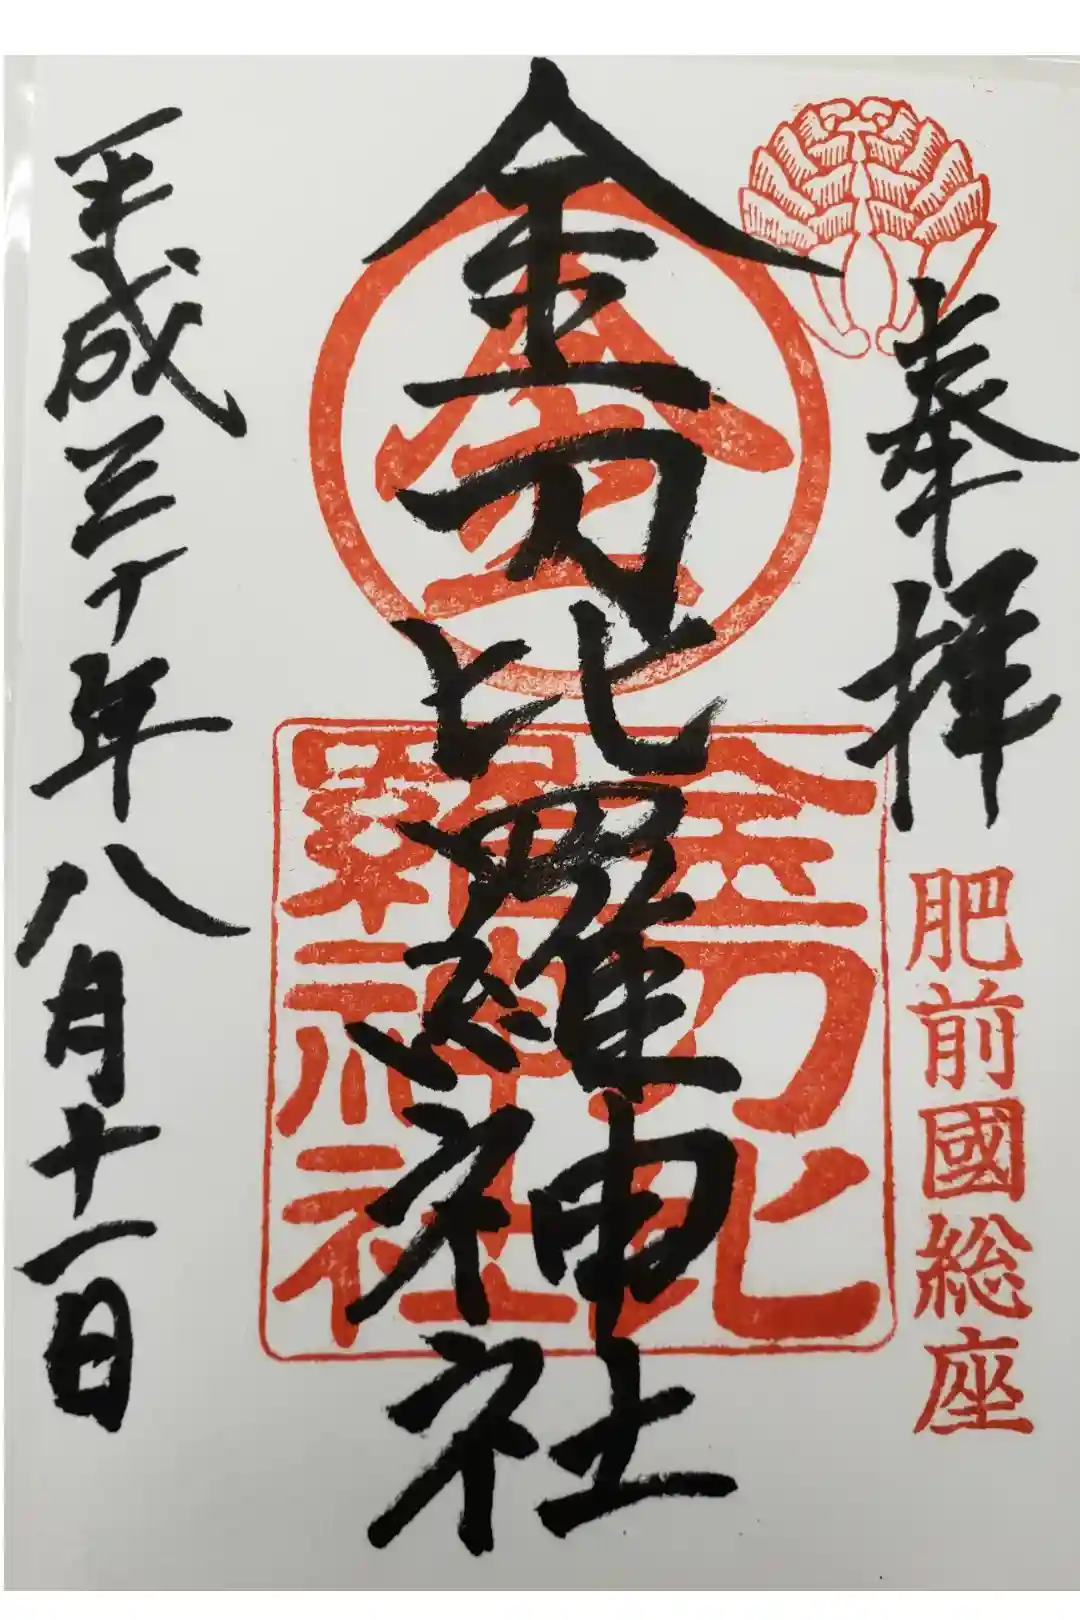 奉拝
肥前國総座
金刀比羅神社
金
金刀比
羅神社
平成三十年八月十一日